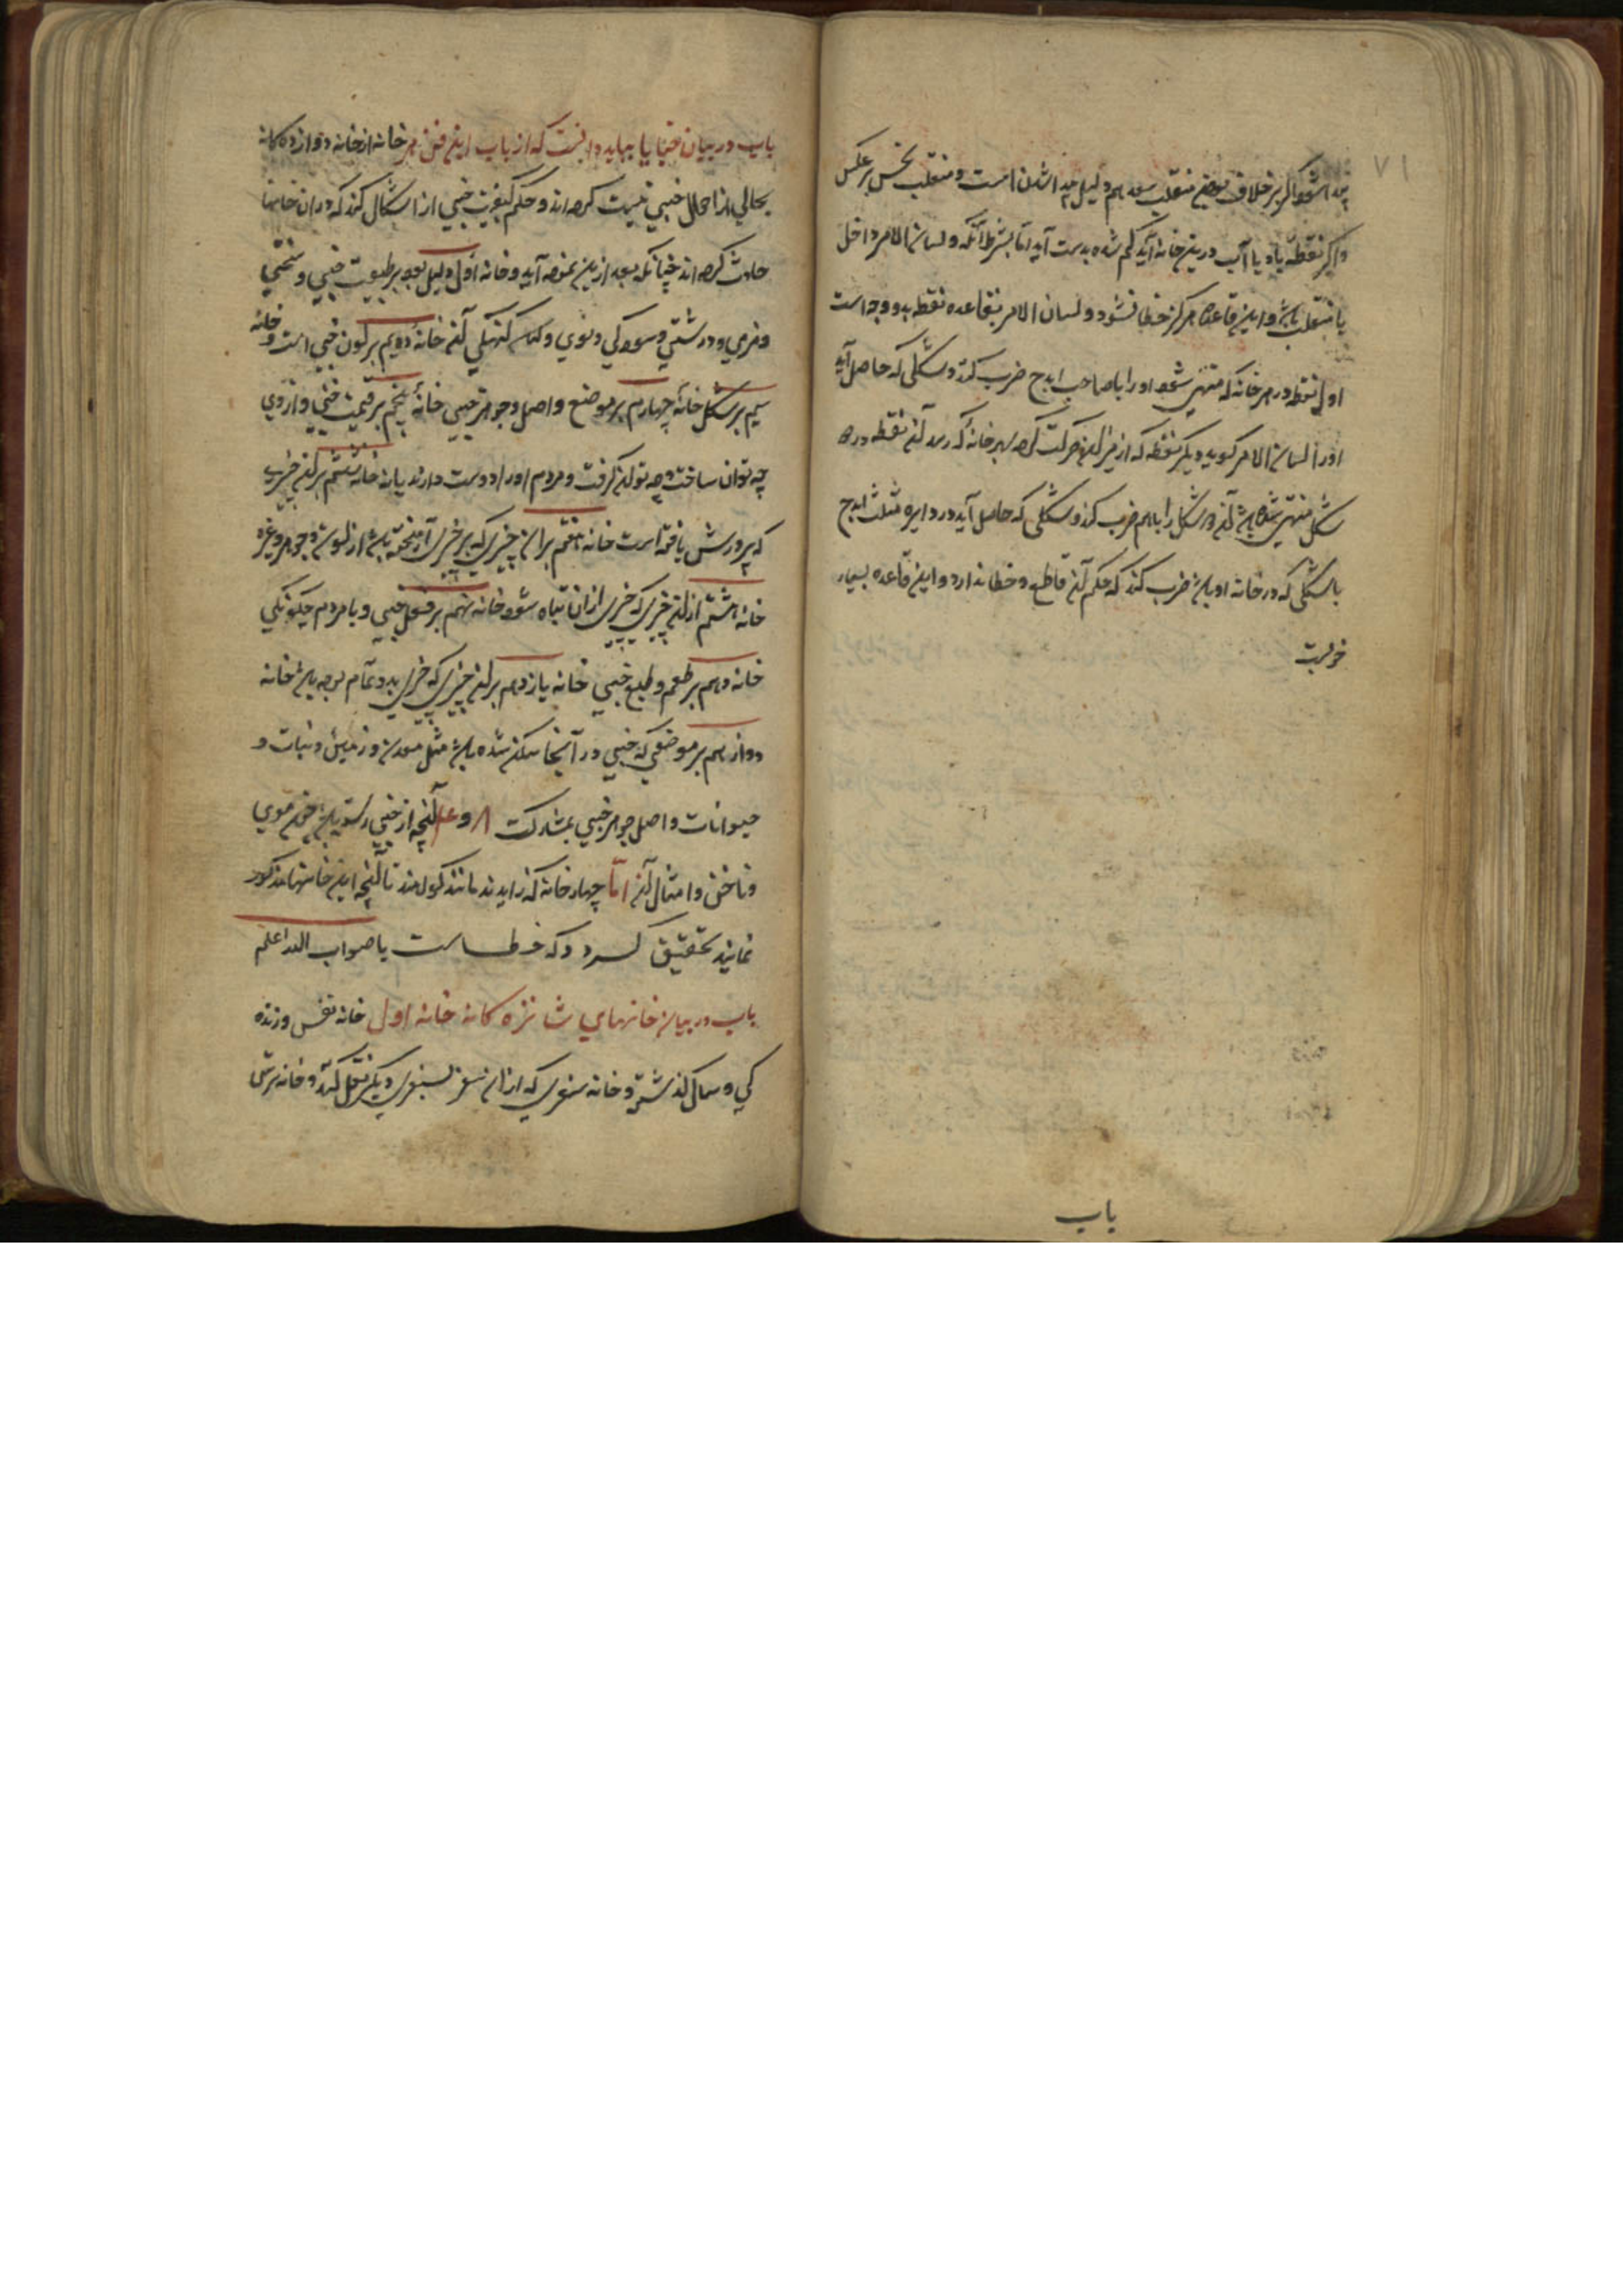 ۷۱
پیدا شود اگر بر خلاف موضع منقلب سعد هم دلیل پیدا شدن است و منقلب نحس بر عکس
و اگر نقطهٔ باد یا آب درین خانه آید گم شده بدست آید اما بشرط آنکه و لسان الامر داخل
یا منقلب باشد و این قاعده هرگز خطا نشود و لسان الامر بقاعده نقطه بدو وجه است
اول نقطه در هر خانه که منتهی شود او را با صاحب ابدح ضرب کند و شکلی که حاصل آید
او را لسان الامر گویند دیگر نقطه که از میزان حرکت کرده بهر خانه که رسد آن نقطه در
شکل منتهی شده باشد آن دو شکل را باهم ضرب کند و شکلی که حاصل آید در دایره مثلث ابدح
با شکلی که در خانه او باشد ضرب کند که حکم آن قاطع و خطا ندارد و این قاعده بسیار
خوبست
باب
باب در بیان خبایا بباید دانست که ارباب این فن هر خانه از خانه دوازده کانه
بحالی از احوال خبی نسبت کرده اند و حکم کیفیت خبی از اشکال کنند که در آن خانها
حادث کرده اند چنانکه بعد ازین نموده آید و خانه اول دلیل بود بر طبیعت خبی و سختی
و نرمی و درشتی و سبکی و نوی و کهنگی آن خانهٔ دویم بر لون خبی است و خانه
سیم بر شکل خانهٔ چهارم بر موضع و اصل و جوهر خبی خانهٔ پنجم بر قیمت خبی و از وی
چه توان ساخت و چه توان گرفت و مردم او را دوست دارند یا نه خانه ششم بر آن چیزی
که پرورش یافته است خانه هفتم بر آن چیزی که بر چیزی آمیخته باشد از لون و جوهر و غیره
خانه هشتم از آن چیزی که چیزی از آن تباه شود خانه نهم بر فعل خبی و با مردم چگونگی
خانه دهم بر طعم و طبع خبی خانه یازدهم بر آن چیزی که چیزی بدو تمام بوده باشد خانه
دوازدهم بر موضعی که خبی در آنجا ساکن شده باشد مثل معدن و زمین و نبات و
حیوانات و اصل جوهر خبی بمشارکت ۸ و ۴ آنچه از خبی رسته باشد چون موی
و ناخن و امثال آن اما چهار خانه که زایدند مانند گواهند تا آنچه این خانها مذکور
نمایند تحقیق گردد که خطاست یا صواب الله اعلم
باب در بیان خانهای شانزده کانه خانه اول خانه نفس و زنده
کی و سال گذشته و خانه سفری که از آن سفر بسفری دیگر نقل کند و خانه